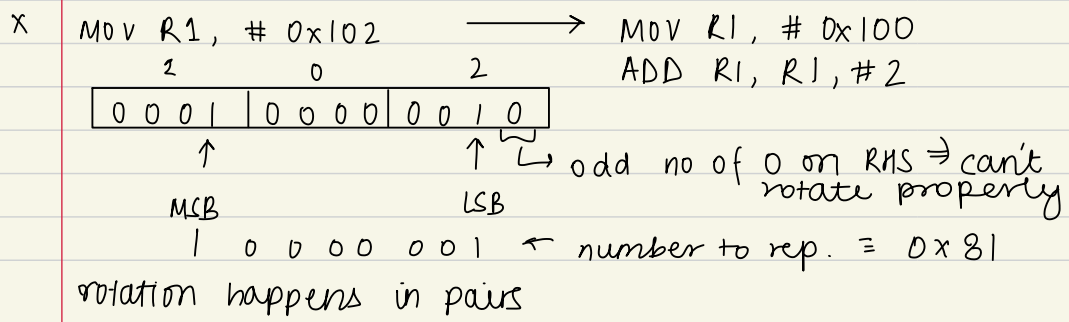 x MOV R1, # 0x102 → MOV R1, # 0x100
ADD R1, R1, #2
1 0 2
0 0 0 1 0 0 0 0 0 0 1 0
↑ ↑ ↳ odd no of 0 on RHS ⇒ can't
rotate properly
MSB LSB
1 0 0 0 0 0 0 1 ← number to rep. = 0x81
rotation happens in pairs